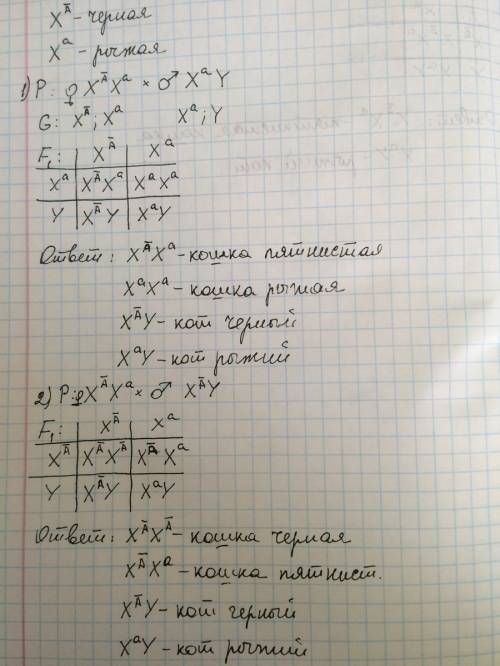 X^Ā - черная
X^a - рыжая
1) P: ♀ X^Ā X^a × ♂ X^a Y
G: X^Ā; X^a X^a; Y
F₁: X^Ā X^a
X^a X^Ā X^a X^a X^a
Y X^Ā Y X^a Y
Ответ: X^Ā X^a - кошка пятнистая
X^a X^a - кошка рыжая
X^Ā Y - кот черный
X^a Y - кот рыжий
2) P: ♀ X^Ā X^a × ♂ X^Ā Y
F₁: X^Ā X^a
X^Ā X^Ā X^Ā X^Ā X^a
Y X^Ā Y X^a Y
Ответ: X^Ā X^Ā - кошка черная
X^Ā X^a - кошка пятнист.
X^Ā Y - кот черный
X^a Y - кот рыжий